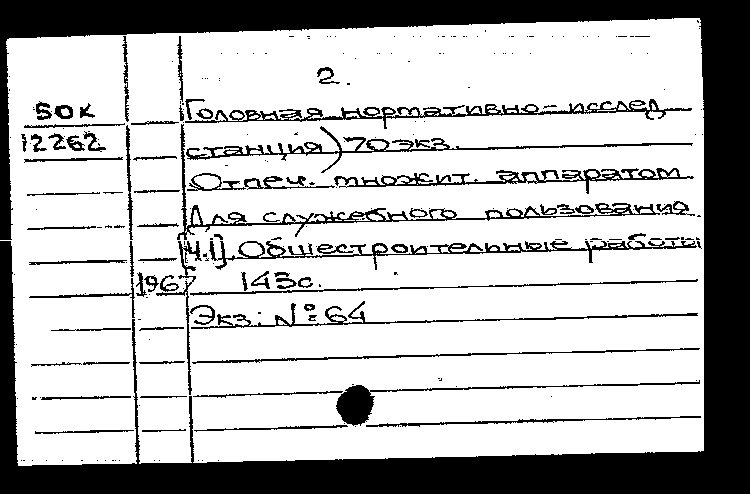 2.
50к Головная нормативно-исслед
12262 станция) 70экз.
Отпеч. множит. аппаратом.
Для служебного пользования
[Ч.1]. Общестроительные работы
1967 143с.
Экз: № 64